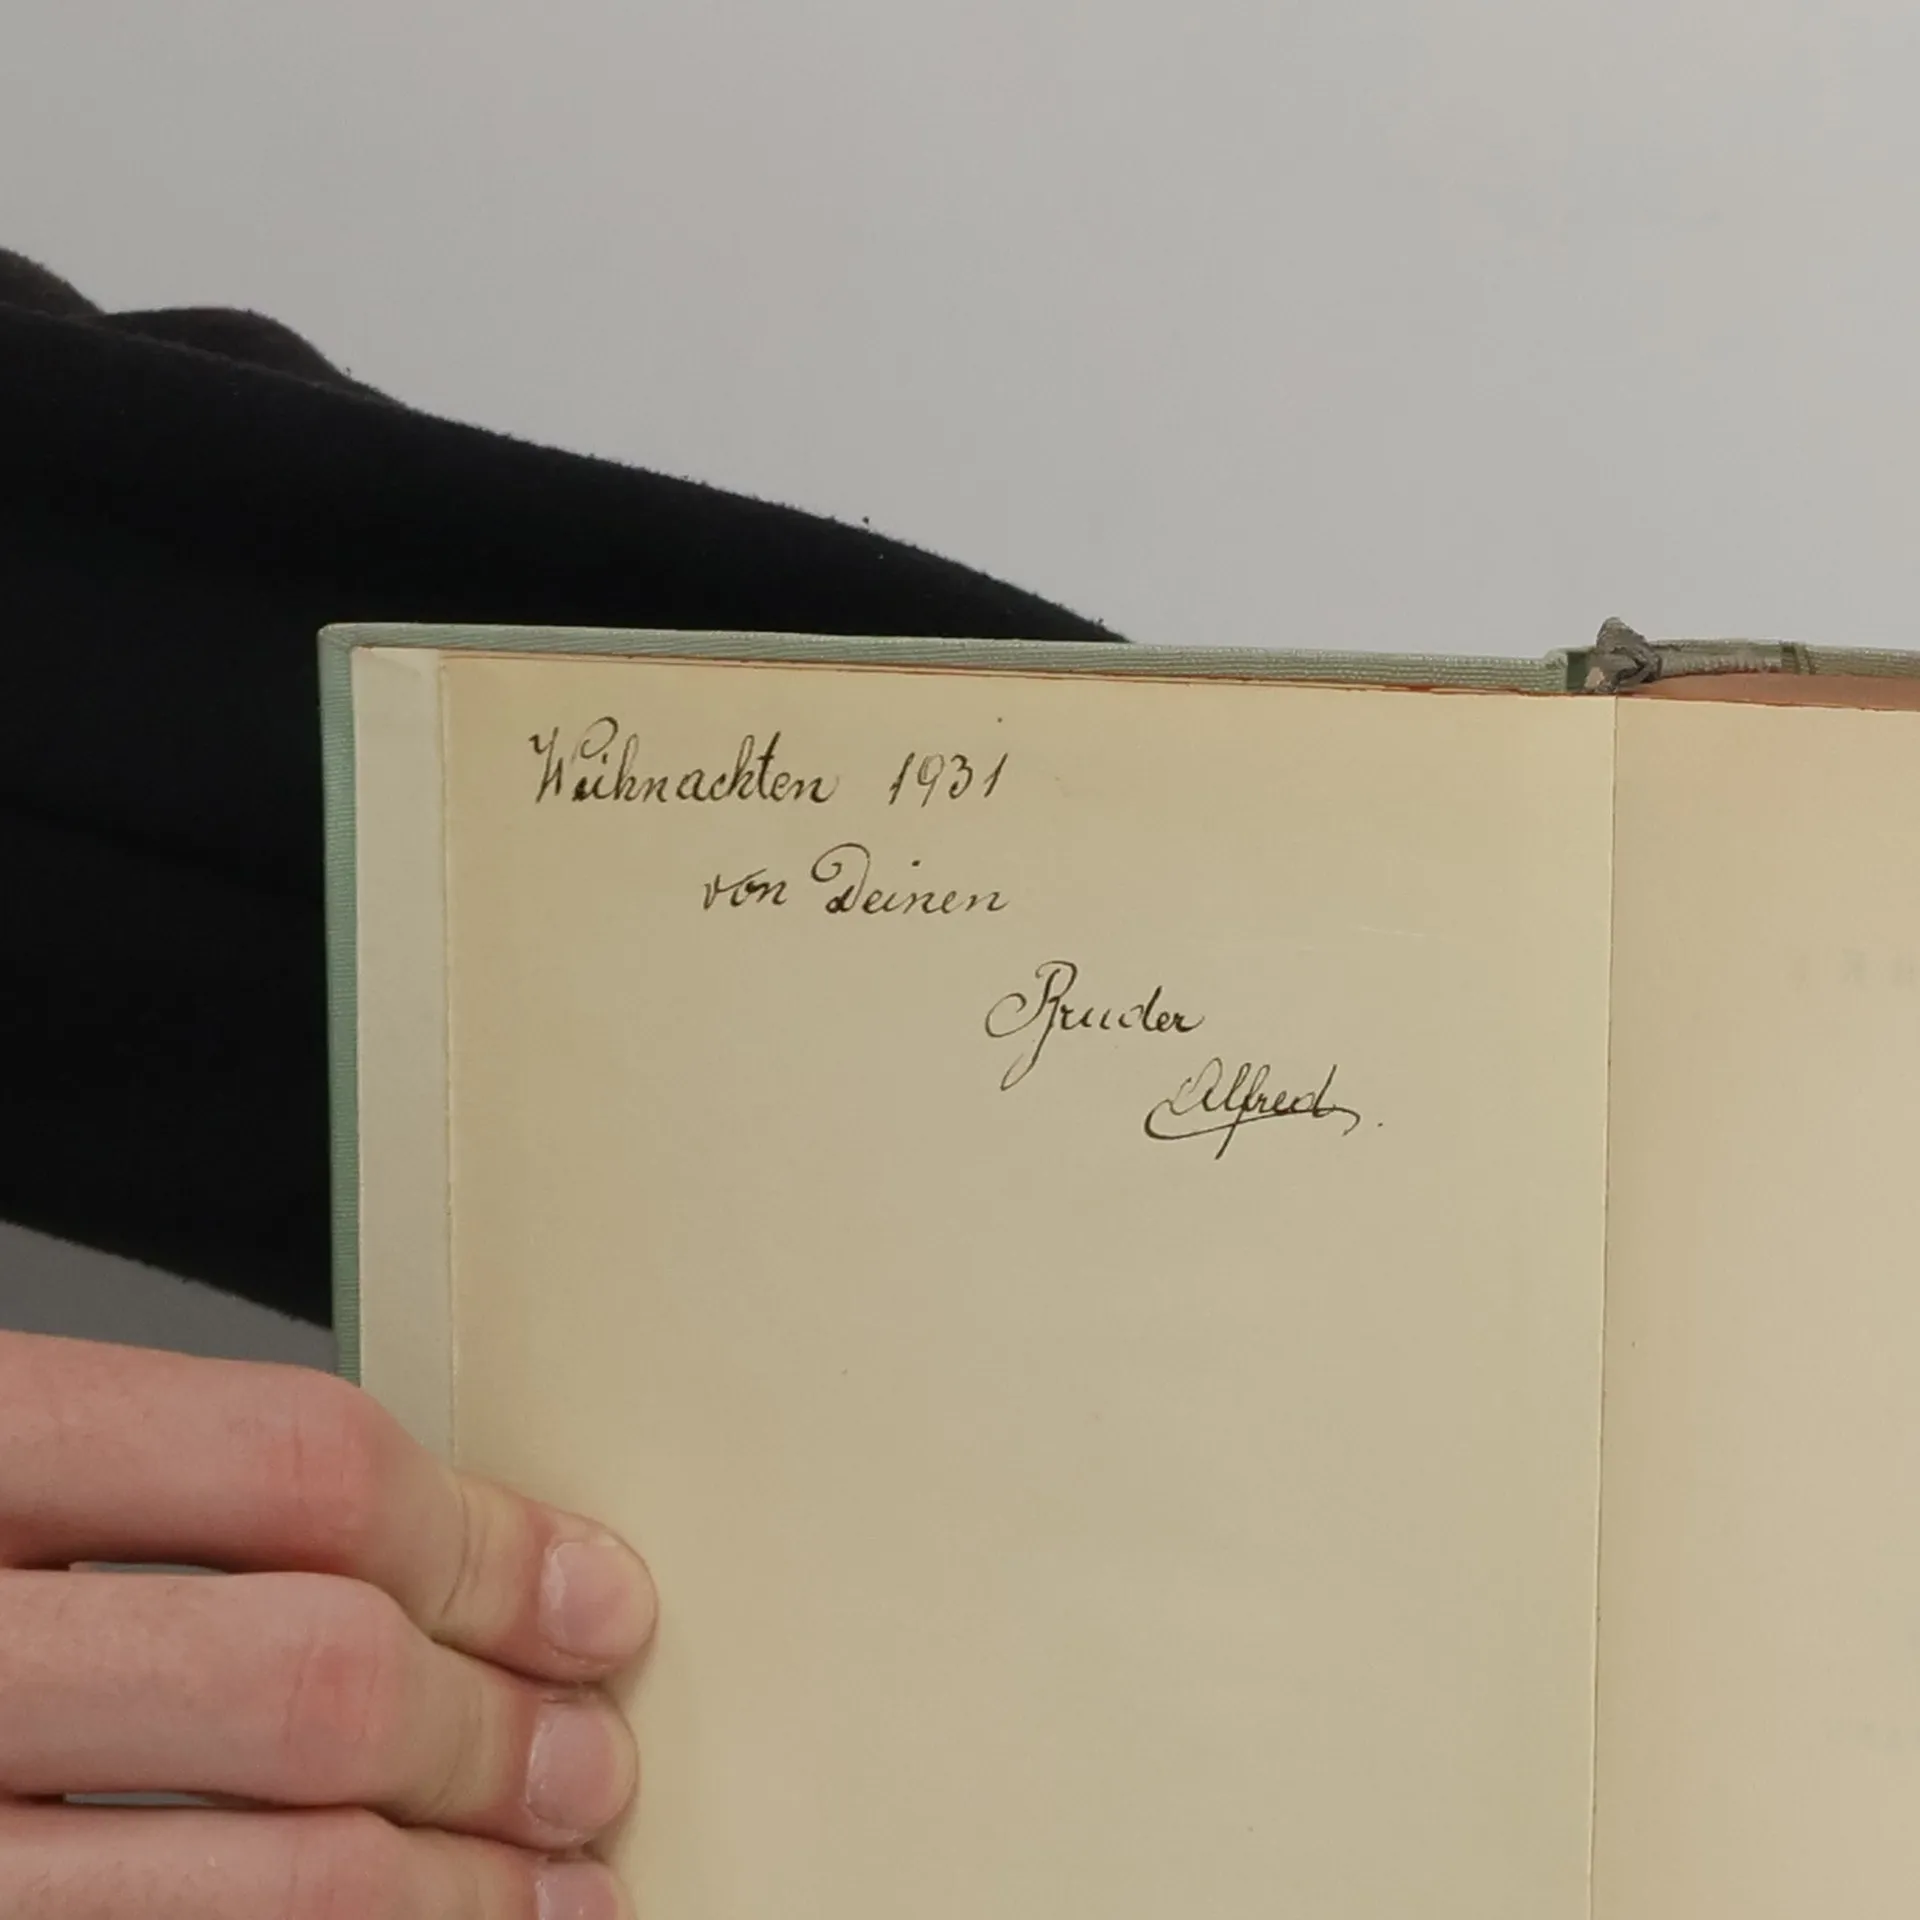 Weihnachten 1931
von Deinen
Bruder
Alfred.